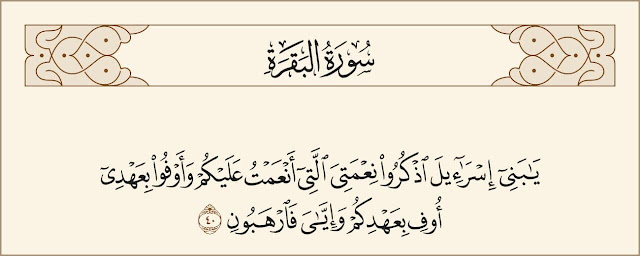 سُورَةُ البَقَرَةِ
يَـٰبَنِىٓ إِسْرَٰٓءِيلَ ٱذْكُرُوا۟ نِعْمَتِىَ ٱلَّتِىٓ أَنْعَمْتُ عَلَيْكُمْ وَأَوْفُوا۟ بِعَهْدِىٓ
أُوفِ بِعَهْدِكُمْ وَإِيَّـٰىَ فَٱرْهَبُونِ ٤٠